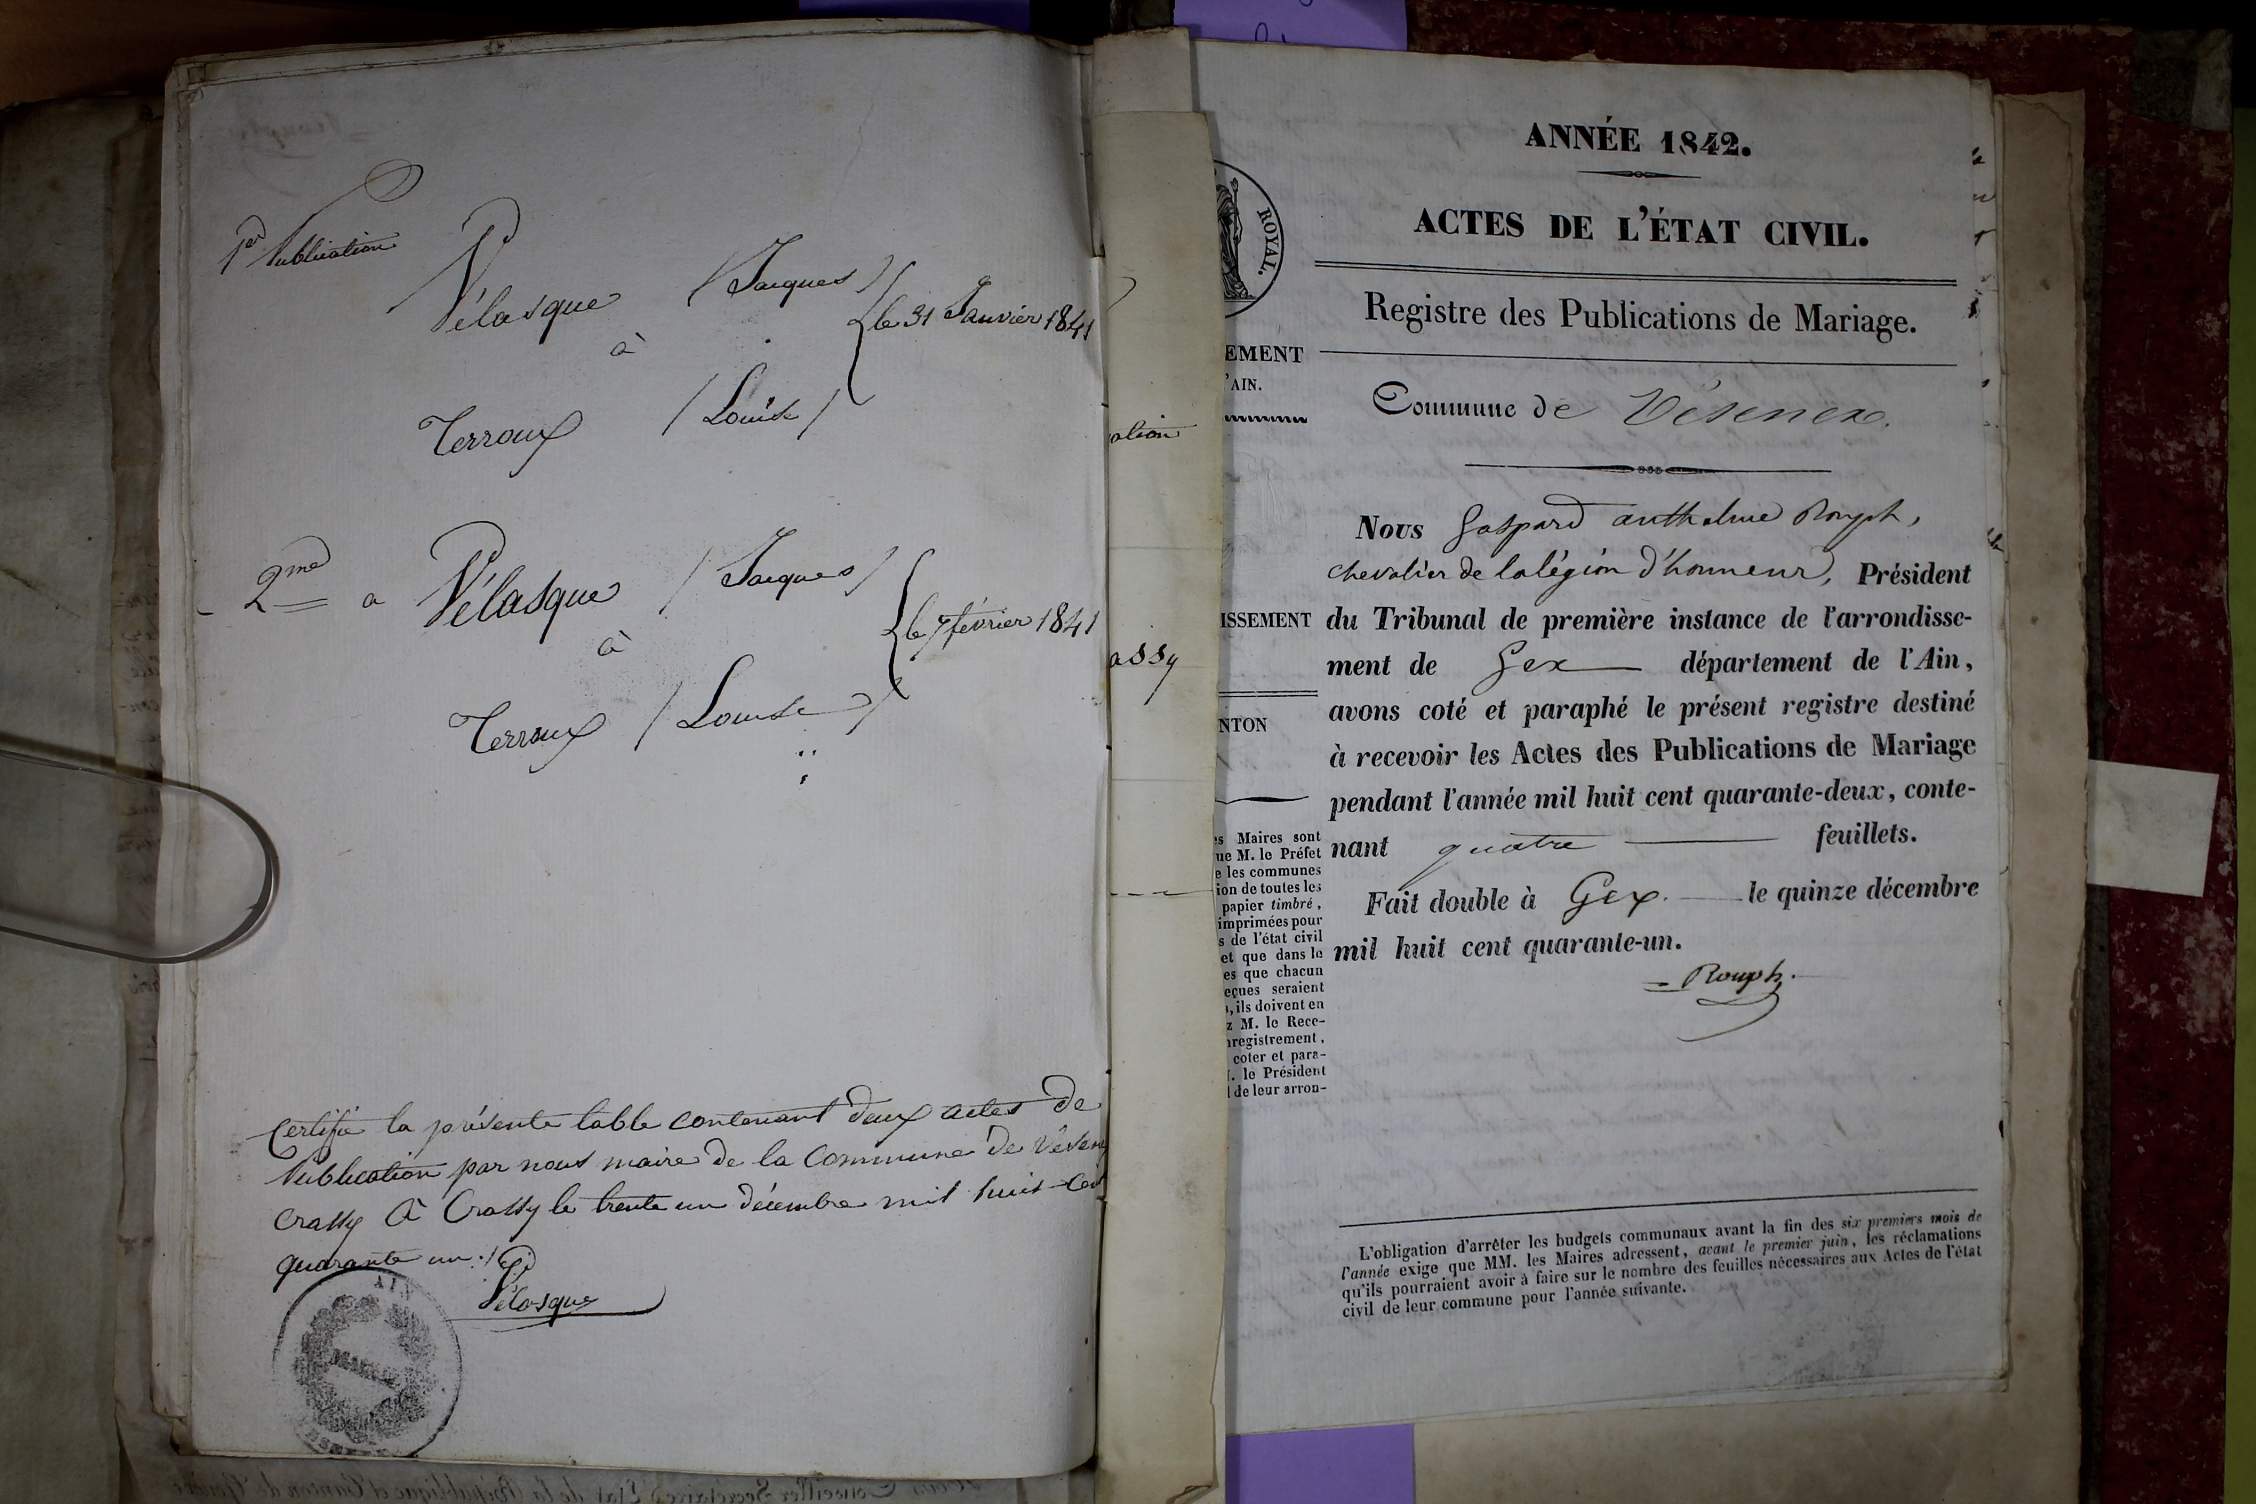 1re Publication
Vélasque / Jacques /
à
Terroux / Louise /
le 31 Janvier 1841
2me a Vélasque / Jacques /
à
Terroux / Louise /
le 7 février 1841
Certifié la présente table contenant deux actes de
Publication par nous maire de la Commune de Vésenex
Crassy à Crassy le trente un décembre mil huit-cent
quarante un ./.
Vélasque
AIN
MAIRIE
ation
assy
ROYAL.
EMENT
'AIN.
ISSEMENT
NTON
es Maires sont
ue M. le Préfet
e les communes
ion de toutes les
papier timbré,
imprimées pour
s de l'état civil
et que dans le
es que chacun
eçues seraient
, ils doivent en
z M. le Rece-
nregistrement,
coter et para-
. le Président
l de leur arron-
ANNÉE 1842.
ACTES DE L'ÉTAT CIVIL.
Registre des Publications de Mariage.
Commune de Vésenex.
Nous Gaspard anthelme Rouph,
chevalier de la légion d'honneur, Président
du Tribunal de première instance de l'arrondisse-
ment de Gex département de l'Ain,
avons coté et paraphé le présent registre destiné
à recevoir les Actes des Publications de Mariage
pendant l'année mil huit cent quarante-deux, conte-
nant quatre feuillets.
Fait double à Gex. le quinze décembre
mil huit cent quarante-un.
Rouph.
L'obligation d'arrêter les budgets communaux avant la fin des six premiers mois de
l'année exige que MM. les Maires adressent, avant le premier juin, les réclamations
qu'ils pourraient avoir à faire sur le nombre des feuilles nécessaires aux Actes de l'état
civil de leur commune pour l'année suivante.